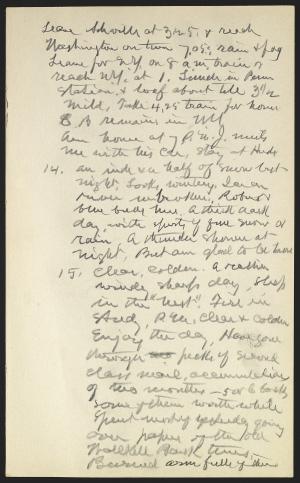 Leave Ashville at 3:25, & reach
Washington on time 7.05; rain & fog
Leave for N.Y. on 8 a.m. train &
reach N.Y. at 1. Lunch in Penn
Station, & loaf about till 3½
Mild, Take 4,25 train for home
C.B. remains in N.Y.
Am home at 7 P.M. J. meets
me with his car, stay at Huds
14. an inch & a half of snow last
night, Looks wintery,
river unbroken, Robins &
blue birds here, A thick dark
day, with spurts of fine snow &
rain. A thunder shower at
night, But am glad to be home
15, Clear, colder. A
windy sharp day, Sleep
in the "nest". Fire in
Study, P.M, clear & colder
Enjoy the day, Have gone
through pecks of second
class mail, accumulation
of two months – 5 or 6 books
some of them worth while
Spent most of yesterday going
over papers of the old
Wallkill Bank times –
Burned arm fulls of them